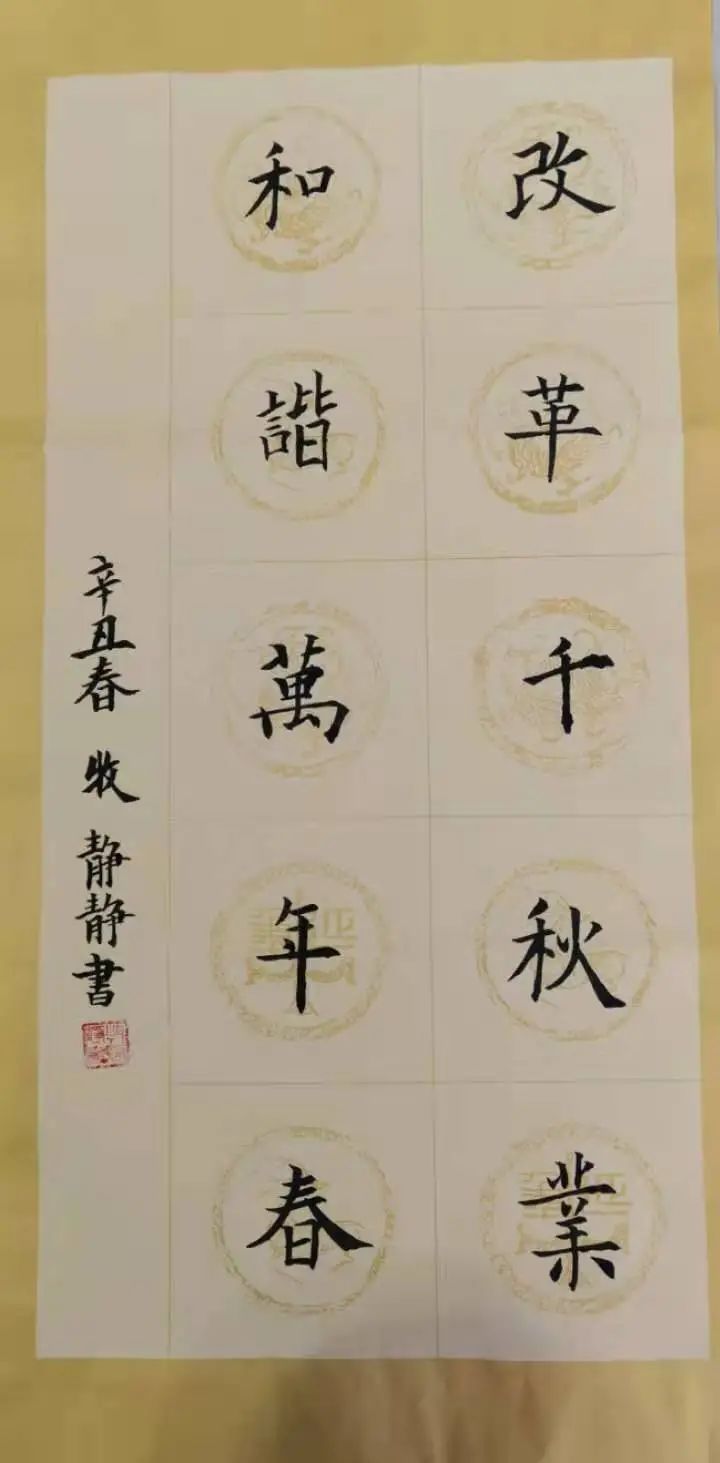 改革千秋業
和諧萬年春
辛丑春 牧 靜靜書